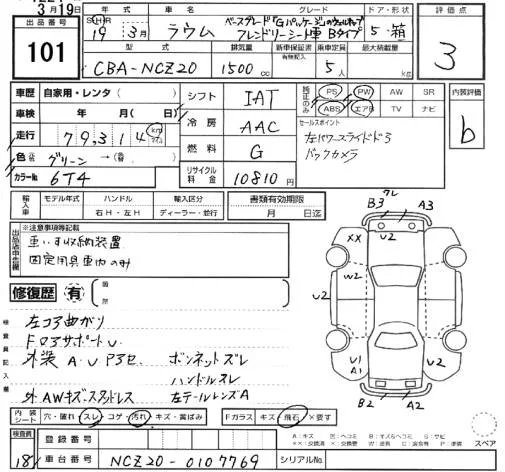 3月19日
出品番号
101
年式 車名 グレード ドア・形状 評価点
S・H・R 19年 3月 ラウム ベースグレード「Gパッケージ」のウェルキャブ フレンドリーシート車 Bタイプ 5・箱 3
型式 排気量 新車保証書 有無記入 乗車定員 最大積載量
CBA-NCZ20 1500cc 5人 kg
車歴 自家用・レンタ( )
車検 年 月( 日)
走行 79,314 km マイル
色 グリーン →( )
カラーNo. 6T4
シフト IAT
冷房 AAC
燃料 G
リサイクル料金 10810円
純正のみ PS PW AW SR
ABS エアB TV ナビ
セールスポイント
左パワースライドドア
バックカメラ
内装評価
b
輸入車 モデル年式 ハンドル 輸入区分 書類有効期限
右H・左H ディーラー・並行 月 日迄
※注意事項等記載
車いす収納装置
固定用具車内のみ
修復歴 有
検査員記入欄
左コア曲がり
FコアサポートU
外装A・U P3セ ボンネットズレ
ハンドルスレ
外AWキズスタッドレス 左テールレンズA
内装シート 穴・破れ・スレ・コゲ・汚れ・キズ・黄ばみ Fガラス キズ・飛石・×要す
検査費 登録番号
181 車台番号 NCZ20-0107769 シリアルNo.
クレ
B3 A3
XX U2
W2
U2 U2
U1
A1
B2 A2
スペア